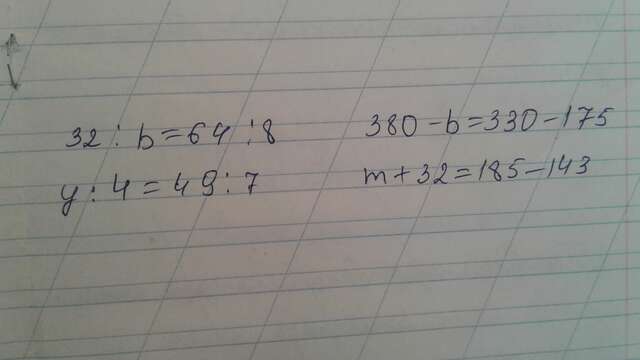 32 : b = 64 : 8    380 - b = 330 - 175
y : 4 = 49 : 7    m + 32 = 185 - 143